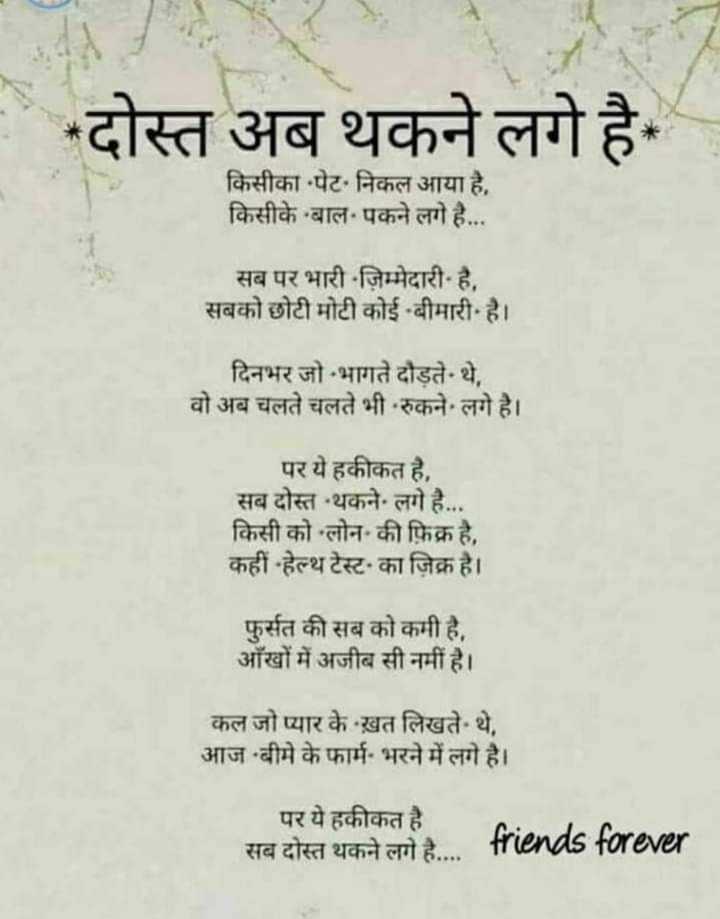 *दोस्त अब थकने लगे है*
किसीका •पेट• निकल आया है,
किसीके •बाल• पकने लगे है...
सब पर भारी •ज़िम्मेदारी• है,
सबको छोटी मोटी कोई •बीमारी• है।
दिनभर जो •भागते दौड़ते• थे,
वो अब चलते चलते भी •रुकने• लगे है।
पर ये हकीकत है,
सब दोस्त •थकने• लगे है...
किसी को •लोन• की फ़िक्र है,
कहीं •हेल्थ टेस्ट• का ज़िक्र है।
फुर्सत की सब को कमी है,
आँखों में अजीब सी नमीं है।
कल जो प्यार के •ख़त लिखते• थे,
आज •बीमे के फार्म• भरने में लगे है।
पर ये हकीकत है
सब दोस्त थकने लगे है....
friends forever